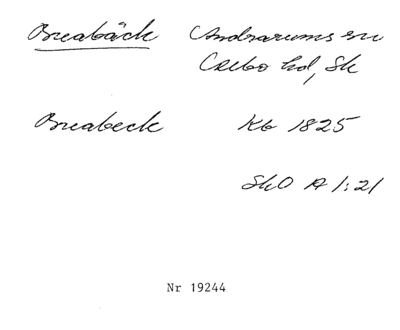 Breabäck Andrarums sn
Albo hd, Sk
Breabeck Kb 1825
SkO A 1:21
Nr 19244